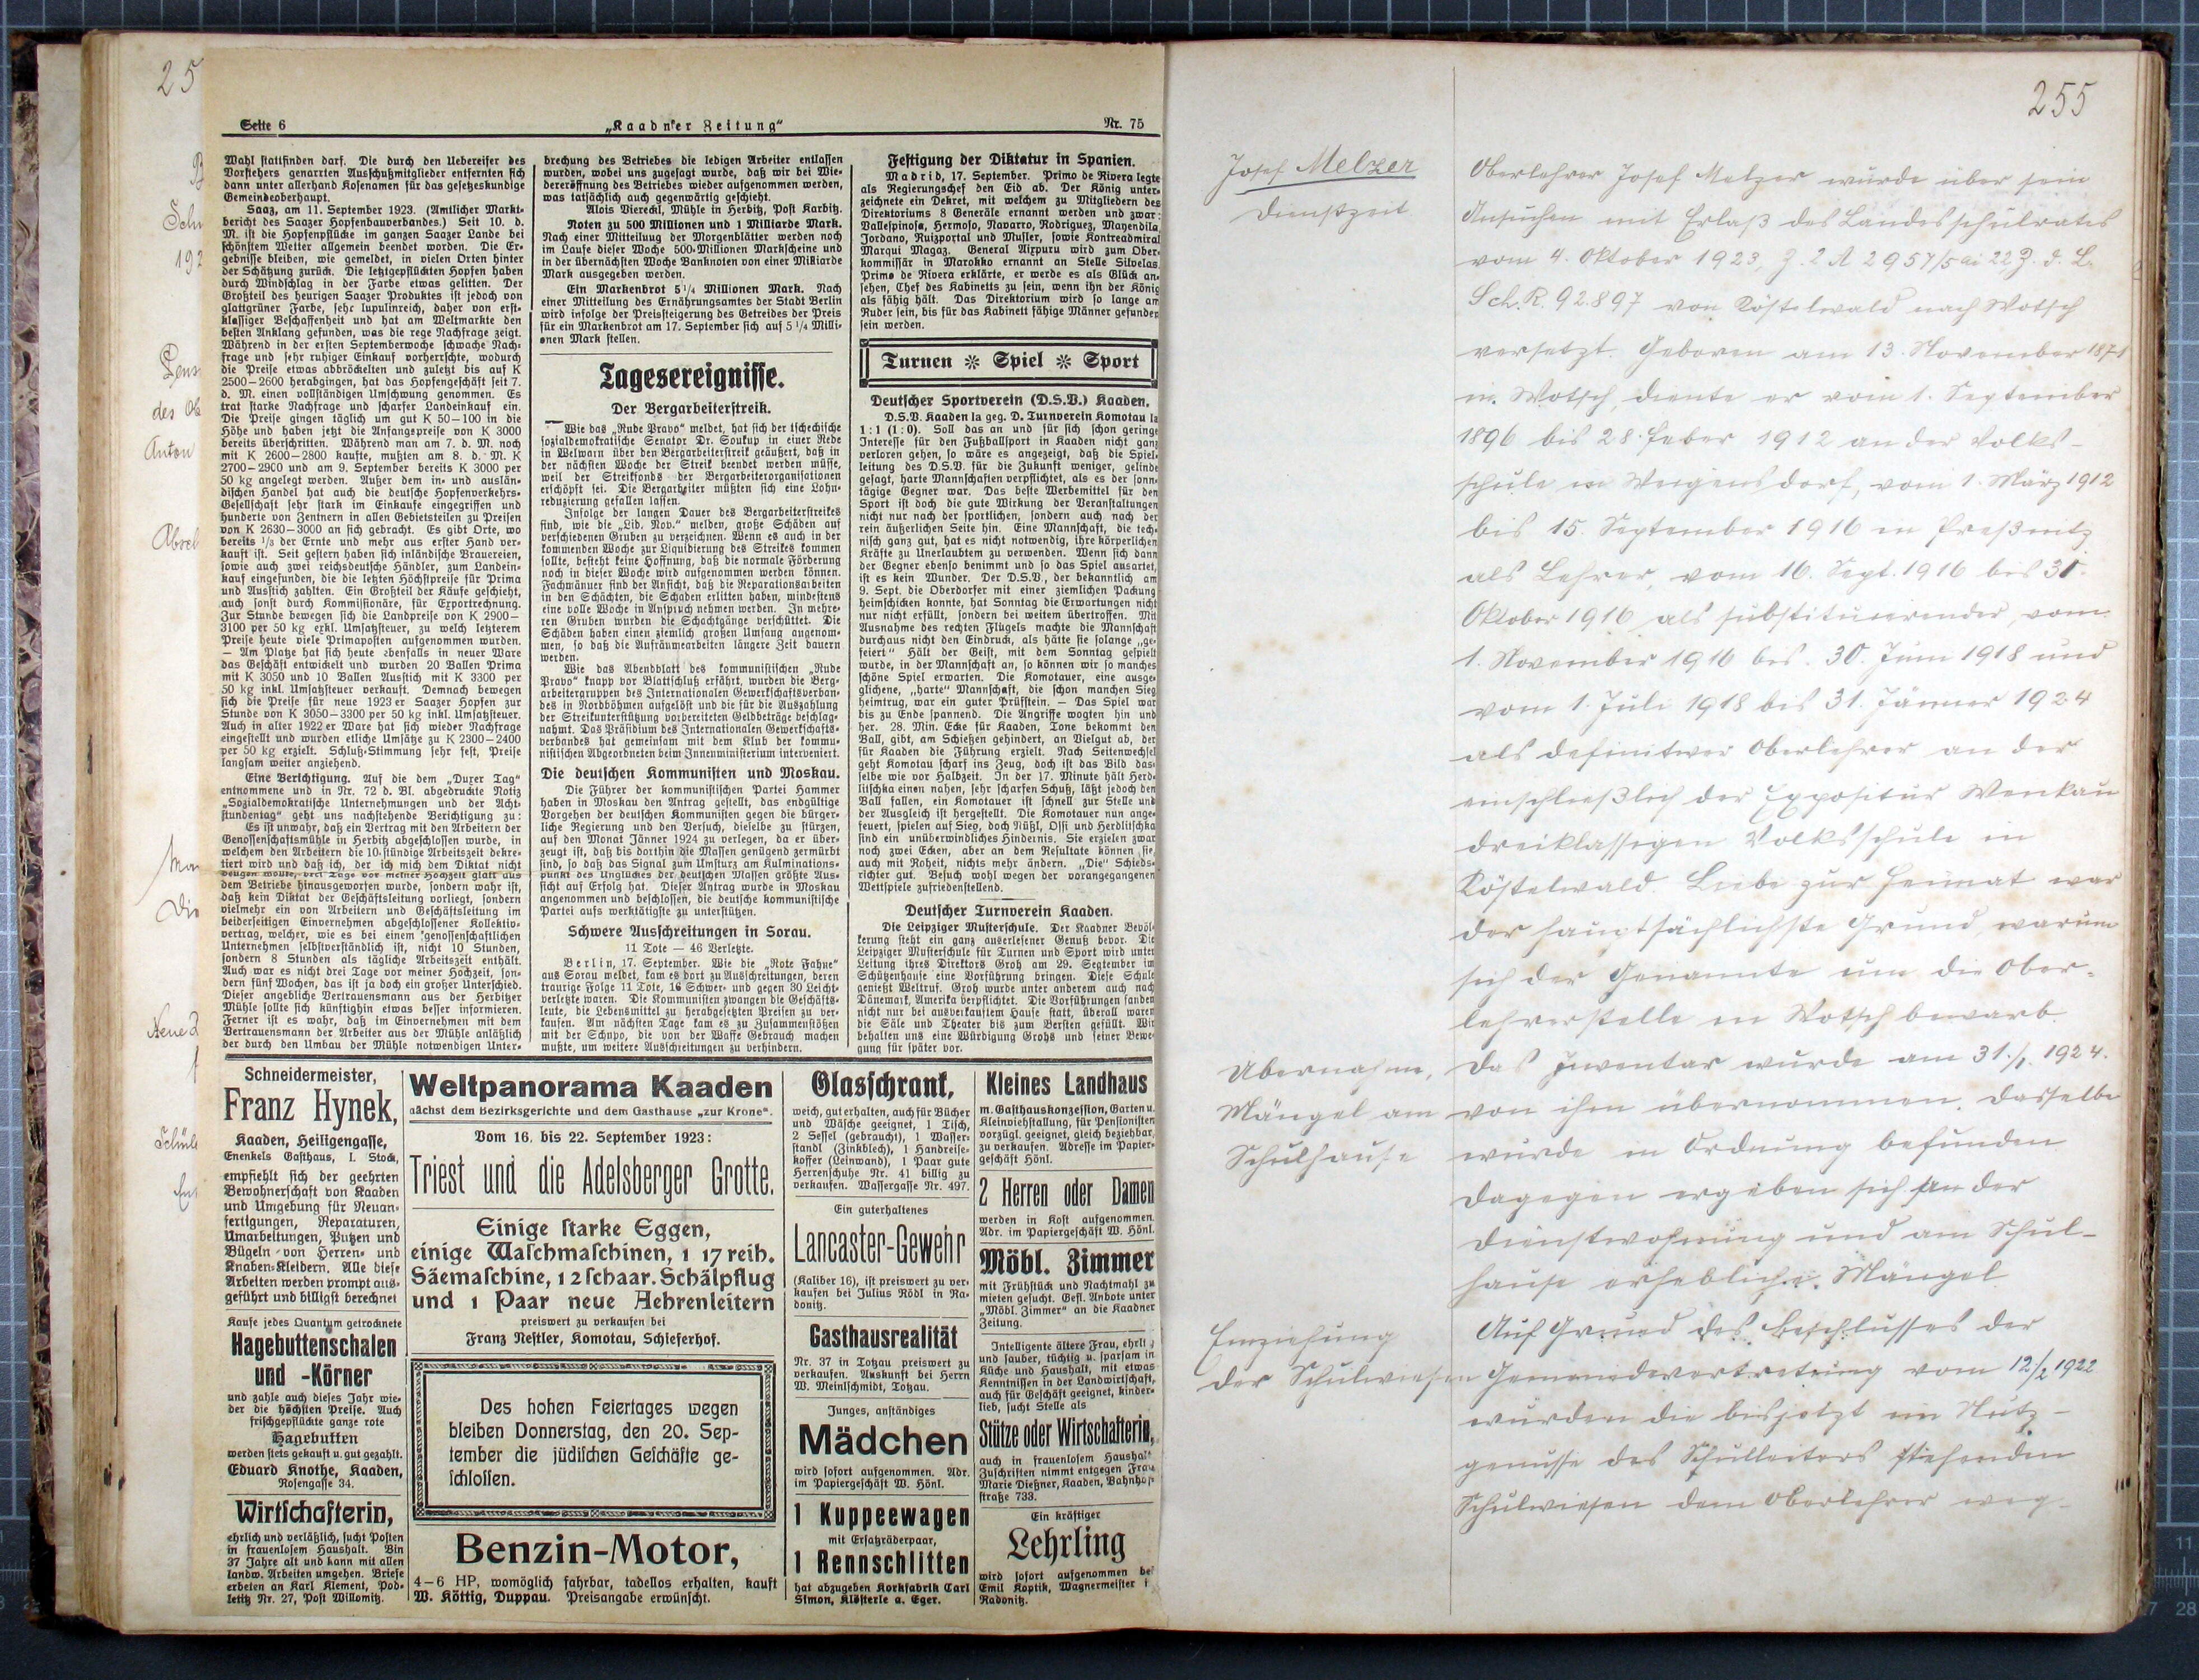 25
Seite 6
„Kaadner Zeitung“
Nr. 75
Wahl stattfinden darf. Die durch den Uebereifer des
Vorstehers genarrten Ausschußmitglieder entfernten sich
dann unter allerhand Kosenamen für das gesetzeskundige
Gemeindeoberhaupt.
Saaz, am 11. September 1923. (Amtlicher Markt-
bericht des Saazer Hopfenbauverbandes.) Seit 10. d.
M. ist die Hopfenpflücke im ganzen Saazer Lande bei
schönstem Wetter allgemein beendet worden. Die Er-
gebnisse bleiben, wie gemeldet, in vielen Orten hinter
der Schätzung zurück. Die letztgepflückten Hopfen haben
durch Windschlag in der Farbe etwas gelitten. Der
Großteil des heurigen Saazer Produktes ist jedoch von
glattgrüner Farbe, sehr lupulinreich, daher von erst-
klassiger Beschaffenheit und hat am Weltmarkte den
besten Anklang gefunden, was die rege Nachfrage zeigt.
Während in der ersten Septemberwoche schwache Nach-
frage und sehr ruhiger Einkauf vorherrschte, wodurch
die Preise etwas abbröckelten und zuletzt bis auf K
2500–2600 herabgingen, hat das Hopfengeschäft seit 7.
d. M. einen vollständigen Umschwung genommen. Es
trat starke Nachfrage und scharfer Landeinkauf ein.
Die Preise gingen täglich um gut K 50–100 in die
Höhe und haben jetzt die Anfangspreise von K 3000
bereits überschritten. Während man am 7. d. M. noch
mit K 2600–2800 kaufte, mußten am 8. d. M. K
2700–2900 und am 9. September bereits K 3000 per
50 kg angelegt werden. Außer dem in- und auslän-
dischen Handel hat auch die deutsche Hopfenverkehrs-
Gesellschaft sehr stark im Einkaufe eingegriffen und
hunderte von Zentnern in allen Gebietsteilen zu Preisen
von K 2630–3000 an sich gebracht. Es gibt Orte, wo
bereits 1/3 der Ernte und mehr aus erster Hand ver-
kauft ist. Seit gestern haben sich inländische Brauereien,
sowie auch zwei reichsdeutsche Händler, zum Landein-
kauf eingefunden, die die letzten Höchstpreise für Prima
und Ausstich zahlten. Ein Großteil der Käufe geschieht,
auch sonst durch Kommissionäre, für Exportrechnung.
Zur Stunde bewegen sich die Landpreise von K 2900–
3100 per 50 kg exkl. Umsatzsteuer, zu welch letzterem
Preise heute viele Primaposten aufgenommen wurden.
— Am Platze hat sich heute ebenfalls in neuer Ware
das Geschäft entwickelt und wurden 20 Ballen Prima
mit K 3050 und 10 Ballen Ausstich mit K 3300 per
50 kg inkl. Umsatzsteuer verkauft. Demnach bewegen
sich die Preise für neue 1923er Saazer Hopfen zur
Stunde von K 3050–3300 per 50 kg inkl. Umsatzsteuer.
Auch in alter 1922er Ware hat sich wieder Nachfrage
eingestellt und wurden etliche Umsätze zu K 2300–2400
per 50 kg erzielt. Schluß-Stimmung sehr fest, Preise
langsam weiter anziehend.
Eine Berichtigung. Auf die dem „Duxer Tag“
entnommene und in Nr. 72 d. Bl. abgedruckte Notiz
„Sozialdemokratische Unternehmungen und der Acht-
stundentag“ geht uns nachstehende Berichtigung zu:
Es ist unwahr, daß ein Vertrag mit den Arbeitern der
Genossenschaftsmühle in Herbitz abgeschlossen wurde, in
welchem den Arbeitern die 10-stündige Arbeitszeit dekre-
tiert wird und daß ich, der ich mich dem Diktat nicht
beugen wollte, drei Tage vor meiner Hochzeit glatt aus
dem Betriebe hinausgeworfen wurde, sondern wahr ist,
daß kein Diktat der Geschäftsleitung vorliegt, sondern
vielmehr ein von Arbeitern und Geschäftsleitung im
beiderseitigen Einvernehmen abgeschlossener Kollektiv-
vertrag, welcher, wie es bei einem genossenschaftlichen
Unternehmen selbstverständlich ist, nicht 10 Stunden,
sondern 8 Stunden als tägliche Arbeitszeit enthält.
Auch war es nicht drei Tage vor meiner Hochzeit, son-
dern fünf Wochen, das ist ja doch ein großer Unterschied.
Dieser angebliche Vertrauensmann aus der Herbitzer
Mühle sollte sich künftighin etwas besser informieren.
Ferner ist es wahr, daß im Einvernehmen mit dem
Vertrauensmann der Arbeiter aus der Mühle anläßlich
der durch den Umbau der Mühle notwendigen Unter-
brechung des Betriebes die ledigen Arbeiter entlassen
wurden, wobei uns zugesagt wurde, daß wir bei Wie-
dereröffnung des Betriebes wieder aufgenommen werden,
was tatsächlich auch gegenwärtig geschieht.
Alois Viereckl, Mühle in Herbitz, Post Karbitz.
Noten zu 500 Millionen und 1 Milliarde Mark.
Nach einer Mitteilung der Morgenblätter werden noch
im Laufe dieser Woche 500-Millionen Markscheine und
in der übernächsten Woche Banknoten von einer Milliarde
Mark ausgegeben werden.
Ein Markenbrot 5 1/4 Millionen Mark. Nach
einer Mitteilung des Ernährungsamtes der Stadt Berlin
wird infolge der Preissteigerung des Getreides der Preis
für ein Markenbrot am 17. September sich auf 5 1/4 Milli-
onen Mark stellen.
Tagesereignisse.
Der Bergarbeiterstreik.
Wie das „Rude Pravo“ meldet, hat sich der tschechische
sozialdemokratische Senator Dr. Soukup in einer Rede
in Welwarn über den Bergarbeiterstreik geäußert, daß in
der nächsten Woche der Streik beendet werden müsse,
weil der Streikfonds der Bergarbeiterorganisationen
erschöpft sei. Die Bergarbeiter müßten sich eine Lohn-
reduzierung gefallen lassen.
Infolge der langen Dauer des Bergarbeiterstreikes
sind, wie die „Lid. Nov.“ melden, große Schäden auf
verschiedenen Gruben zu verzeichnen. Wenn es auch in der
kommenden Woche zur Liquidierung des Streikes kommen
sollte, besteht keine Hoffnung, daß die normale Förderung
noch in dieser Woche wird aufgenommen werden können.
Fachmänner sind der Ansicht, daß die Reparationsarbeiten
in den Schächten, die Schaden erlitten haben, mindestens
eine volle Woche in Anspruch nehmen werden. In mehre-
ren Gruben wurden die Schachtgänge verschüttet. Die
Schäden haben einen ziemlich großen Umfang angenom-
men, so daß die Aufräumearbeiten längere Zeit dauern
werden.
Wie das Abendblatt des kommunistischen „Rude
Pravo“ knapp vor Blattschluß erfährt, wurden die Berg-
arbeitergruppen des Internationalen Gewerkschaftsverban-
des in Nordböhmen aufgelöst und die für die Auszahlung
der Streikunterstützung vorbereiteten Geldbeträge beschlag-
nahmt. Das Präsidium des Internationalen Gewerkschafts-
verbandes hat gemeinsam mit dem Klub der kommu-
nistischen Abgeordneten beim Innenministerium interveniert.
Die deutschen Kommunisten und Moskau.
Die Führer der kommunistischen Partei Hammer
haben in Moskau den Antrag gestellt, das endgültige
Vorgehen der deutschen Kommunisten gegen die bürger-
liche Regierung und den Versuch, dieselbe zu stürzen,
auf den Monat Jänner 1924 zu verlegen, da er über-
zeugt ist, daß bis dorthin die Massen genügend zermürbt
sind, so daß das Signal zum Umsturz am Kulminations-
punkt des Unglückes der deutschen Massen größte Aus-
sicht auf Erfolg hat. Dieser Antrag wurde in Moskau
angenommen und beschlossen, die deutsche kommunistische
Partei aufs werktätigste zu unterstützen.
Schwere Ausschreitungen in Sorau.
11 Tote — 46 Verletzte.
Berlin, 17. September. Wie die „Rote Fahne“
aus Sorau meldet, kam es dort zu Ausschreitungen, deren
traurige Folge 11 Tote, 16 Schwer- und gegen 30 Leicht-
verletzte waren. Die Kommunisten zwangen die Geschäfts-
leute, die Lebensmittel zu herabgesetzten Preisen zu ver-
kaufen. Am nächsten Tage kam es zu Zusammenstößen
mit der Schupo, die von der Waffe Gebrauch machen
mußte, um weitere Ausschreitungen zu verhindern.
Festigung der Diktatur in Spanien.
Madrid, 17. September. Primo de Rivera legte
als Regierungschef den Eid ab. Der König unter-
zeichnete ein Dekret, mit welchem zu Mitgliedern des
Direktoriums 8 Generäle ernannt werden und zwar:
Vallespinosa, Hermoso, Navarro, Rodriguez, Mayendila,
Jordano, Ruizportal und Musler, sowie Kontreadmiral
Marqui Magaz. General Aizpuru wird zum Ober-
kommissär in Marokko ernannt an Stelle Silvelas.
Primo de Rivera erklärte, er werde es als Glück an-
sehen, Chef des Kabinetts zu sein, wenn ihn der König
als fähig hält. Das Direktorium wird so lange am
Ruder sein, bis für das Kabinett fähige Männer gefunden
sein werden.
Turnen ※ Spiel ※ Sport
Deutscher Sportverein (D.S.V.) Kaaden.
D.S.V. Kaaden Ia geg. D. Turnverein Komotau Ia
1:1 (1:0). Soll das an und für sich schon geringe
Interesse für den Fußballsport in Kaaden nicht ganz
verloren gehen, so wäre es angezeigt, daß die Spiel-
leitung des D.S.V. für die Zukunft weniger, gelinde
gesagt, harte Mannschaften verpflichtet, als es der sonn-
tägige Gegner war. Das beste Werbemittel für den
Sport ist doch die gute Wirkung der Veranstaltungen
nicht nur nach der sportlichen, sondern auch nach der
rein äußerlichen Seite hin. Eine Mannschaft, die tech-
nisch ganz gut, hat es nicht notwendig, ihre körperlichen
Kräfte zu Unerlaubtem zu verwenden. Wenn sich dann
der Gegner ebenso benimmt und so das Spiel ausartet,
ist es kein Wunder. Der D.S.V., der bekanntlich am
9. Sept. die Oberdorfer mit einer ziemlichen Packung
heimschicken konnte, hat Sonntag die Erwartungen nicht
nur nicht erfüllt, sondern bei weitem übertroffen. Mit
Ausnahme des rechten Flügels machte die Mannschaft
durchaus nicht den Eindruck, als hätte sie solange „ge-
feiert“ Hält der Geist, mit dem Sonntag gespielt
wurde, in der Mannschaft an, so können wir so manches
schöne Spiel erwarten. Die Komotauer, eine ausge-
glichene, „harte“ Mannschaft, die schon manchen Sieg
heimtrug, war ein guter Prüfstein. — Das Spiel war
bis zu Ende spannend. Die Angriffe wogten hin und
her. 28. Min. Ecke für Kaaden, Tone bekommt den
Ball, gibt, am Schießen gehindert, an Vielgut ab, der
für Kaaden die Führung erzielt. Nach Seitenwechsel
geht Komotau scharf ins Zeug, doch ist das Bild das-
selbe wie vor Halbzeit. In der 17. Minute hält Herd-
litschka einen nahen, sehr scharfen Schuß, läßt jedoch den
Ball fallen, ein Komotauer ist schnell zur Stelle und
der Ausgleich ist hergestellt. Die Komotauer nun ange-
feuert, spielen auf Sieg, doch Nüßl, Ossi und Herdlitschka
sind ein unüberwindliches Hindernis. Sie erzielen zwar
noch zwei Ecken, aber an dem Resultate können sie,
auch mit Roheit, nichts mehr ändern. „Die“ Schieds-
richter gut. Besuch wohl wegen der vorangegangenen
Wettspiele zufriedenstellend.
Deutscher Turnverein Kaaden.
Die Leipziger Musterschule. Der Kaadner Bevöl-
kerung steht ein ganz auserlesener Genuß bevor. Die
Leipziger Musterschule für Turnen und Sport wird unter
Leitung ihres Direktors Groh am 29. September im
Schützenhause eine Vorführung bringen. Diese Schule
genießt Weltruf. Groh wurde unter anderem auch nach
Dänemark, Amerika verpflichtet. Die Vorführungen fanden
nicht nur bei ausverkauftem Hause statt, überall waren
die Säle und Theater bis zum Bersten gefüllt. Wir
behalten uns eine Würdigung Grohs und seiner Bewe-
gung für später vor.
Schneidermeister,
Franz Hynek,
Kaaden, Heiligengasse,
Enenkels Gasthaus, I. Stock,
empfiehlt sich der geehrten
Bewohnerschaft von Kaaden
und Umgebung für Neuan-
fertigungen, Reparaturen,
Umarbeitungen, Putzen und
Bügeln von Herren- und
Knaben-Kleidern. Alle diese
Arbeiten werden prompt aus-
geführt und billigst berechnet
Kaufe jedes Quantum getrocknete
Hagebuttenschalen
und -Körner
und zahle auch dieses Jahr wie-
der die höchsten Preise. Auch
frischgepflückte ganze rote
Hagebutten
werden stets gekauft u. gut gezahlt.
Eduard Knothe, Kaaden,
Rosengasse 34.
Wirtschafterin,
ehrlich und verläßlich, sucht Posten
in frauenlosem Haushalt. Bin
37 Jahre alt und kann mit allen
landw. Arbeiten umgehen. Briefe
erbeten an Karl Klement, Pod-
letitz Nr. 27, Post Willomitz.
Weltpanorama Kaaden
nächst dem Bezirksgerichte und dem Gasthause „zur Krone“.
Vom 16. bis 22. September 1923:
Triest und die Adelsberger Grotte.
Einige starke Eggen,
einige Waschmaschinen, 1 17 reih.
Säemaschine, 12schaar. Schälpflug
und 1 Paar neue Aehrenleitern
preiswert zu verkaufen bei
Franz Nestler, Komotau, Schieferhof.
Des hohen Feiertages wegen
bleiben Donnerstag, den 20. Sep-
tember die jüdischen Geschäfte ge-
schlossen.
Benzin-Motor,
4–6 HP, womöglich fahrbar, tadellos erhalten, kauft
W. Köttig, Duppau. Preisangabe erwünscht.
Glasschrank,
weich, gut erhalten, auch für Bücher
und Wäsche geeignet, 1 Tisch,
2 Sessel (gebraucht), 1 Wasser-
standl (Zinkblech), 1 Handreise-
koffer (Leinwand), 1 Paar gute
Herrenschuhe Nr. 41 billig zu
verkaufen. Wassergasse Nr. 497.
Ein guterhaltenes
Lancaster-Gewehr
(Kaliber 16), ist preiswert zu ver-
kaufen bei Julius Rödl in Ra-
donitz.
Gasthausrealität
Nr. 37 in Totzau preiswert zu
verkaufen. Auskunft bei Herrn
W. Meinlschmidt, Totzau.
Junges, anständiges
Mädchen
wird sofort aufgenommen. Adr.
im Papiergeschäft W. Hönl.
1 Kuppeewagen
mit Ersatzräderpaar,
1 Rennschlitten
hat abzugeben Korkfabrik Carl
Simon, Klösterle a. Eger.
Kleines Landhaus
m. Gasthauskonzession, Garten u.
Kleinviehstallung, für Pensionisten
vorzügl. geeignet, gleich beziehbar,
zu verkaufen. Adresse im Papier-
geschäft Hönl.
2 Herren oder Damen
werden in Kost aufgenommen.
Adr. im Papiergeschäft W. Hönl.
Möbl. Zimmer
mit Frühstück und Nachtmahl zu
mieten gesucht. Gefl. Anbote unter
„Möbl. Zimmer“ an die Kaadner
Zeitung.
Intelligente ältere Frau, ehrli
und sauber, tüchtig u. sparsam in
Küche und Haushalt, mit etwas
Kenntnissen in der Landwirtschaft,
auch für Geschäft geeignet, kinder-
lieb, sucht Stelle als
Stütze oder Wirtschafterin,
auch in frauenlosem Haushalt
Zuschriften nimmt entgegen Frau
Marie Dießner, Kaaden, Bahnhof-
straße 733.
Ein kräftiger
Lehrling
wird sofort aufgenommen bei
Emil Koptik, Wagnermeister i
Radonitz.
192
des Ob
Anton
Neue
255
Josef Melzer
Dienstzeit
Oberlehrer Josef Melzer wurde über sein
Ansuchen mit Erlaß des Landesschulrates
vom 4. Oktober 1923, Z. 2 A 2957/5 ai 22 Z. d. L.
Sch. R. 92.897 von Köstelwald nach Wotsch
versetzt. Geboren am 13. November 1871
in Wotsch, diente er vom 1. September
1896 bis 28. Feber 1912 an der Volks-
schule in Weigensdorf, vom 1. März 1912
bis 15. September 1916 in Preßnitz
als Lehrer, vom 16. Sept. 1916 bis 31.
Oktober 1916 als substituierender, vom
1. November 1916 bis 30. Juni 1918 und
vom 1. Juli 1918 bis 31. Jänner 1924
als definitiver Oberlehrer an der
einschließlich der Expositur Wenkau
dreiklassigen Volksschule in
Köstelwald. Liebe zur Heimat war
der hauptsächlichste Grund, warum
sich der Genannte um die Ober-
lehrerstelle in Wotsch bewarb.
Übernahme,
Mängel am
Schulhause
Das Inventar wurde am 31./1. 1924.
von ihm übernommen. Dasselbe
wurde in Ordnung befunden
Dagegen ergeben sich an der
Dienstwohnung und am Schul-
hause erhebliche Mängel
Einziehung
der Schulwiesen
Auf Grund des Beschlusses der
Gemeindevertretung vom 12/2 1922
wurden die bis jetzt im Nutz-
genusse des Schulleiters stehenden
Schulwiesen dem Oberlehrer weg-